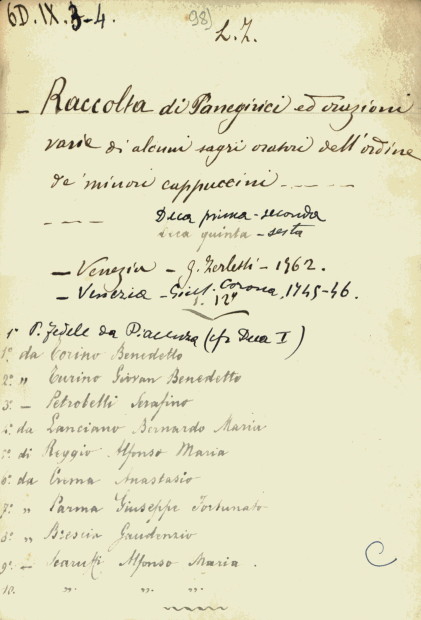 6D.IX.3-4.
98)
L.Z.
- Raccolta di Panegirici ed orazioni
varie di alcuni sagri oratori dell'ordine
de' minori cappuccini - - - -
- - - - Deca prima - seconda
Deca quinta - sesta
- Venezia - G. Zerletti - 1762.
- Venezia - Gius. Corona, 1745-46.
1° P. Fedele da Piacenza (cfr Deca I)
1° da Torino Benedetto
2° " Turino Giovan Benedetto
3° - Petrobelli Serafino
4° da Lanciano Bernardo Maria
5° di Reggio Alfonso Maria
6° da Crema Anastasio
7° " Parma Giuseppe Fortunato
8° " Brescia Gaudenzio
9° - Alfonso Maria.
10. " " "
C